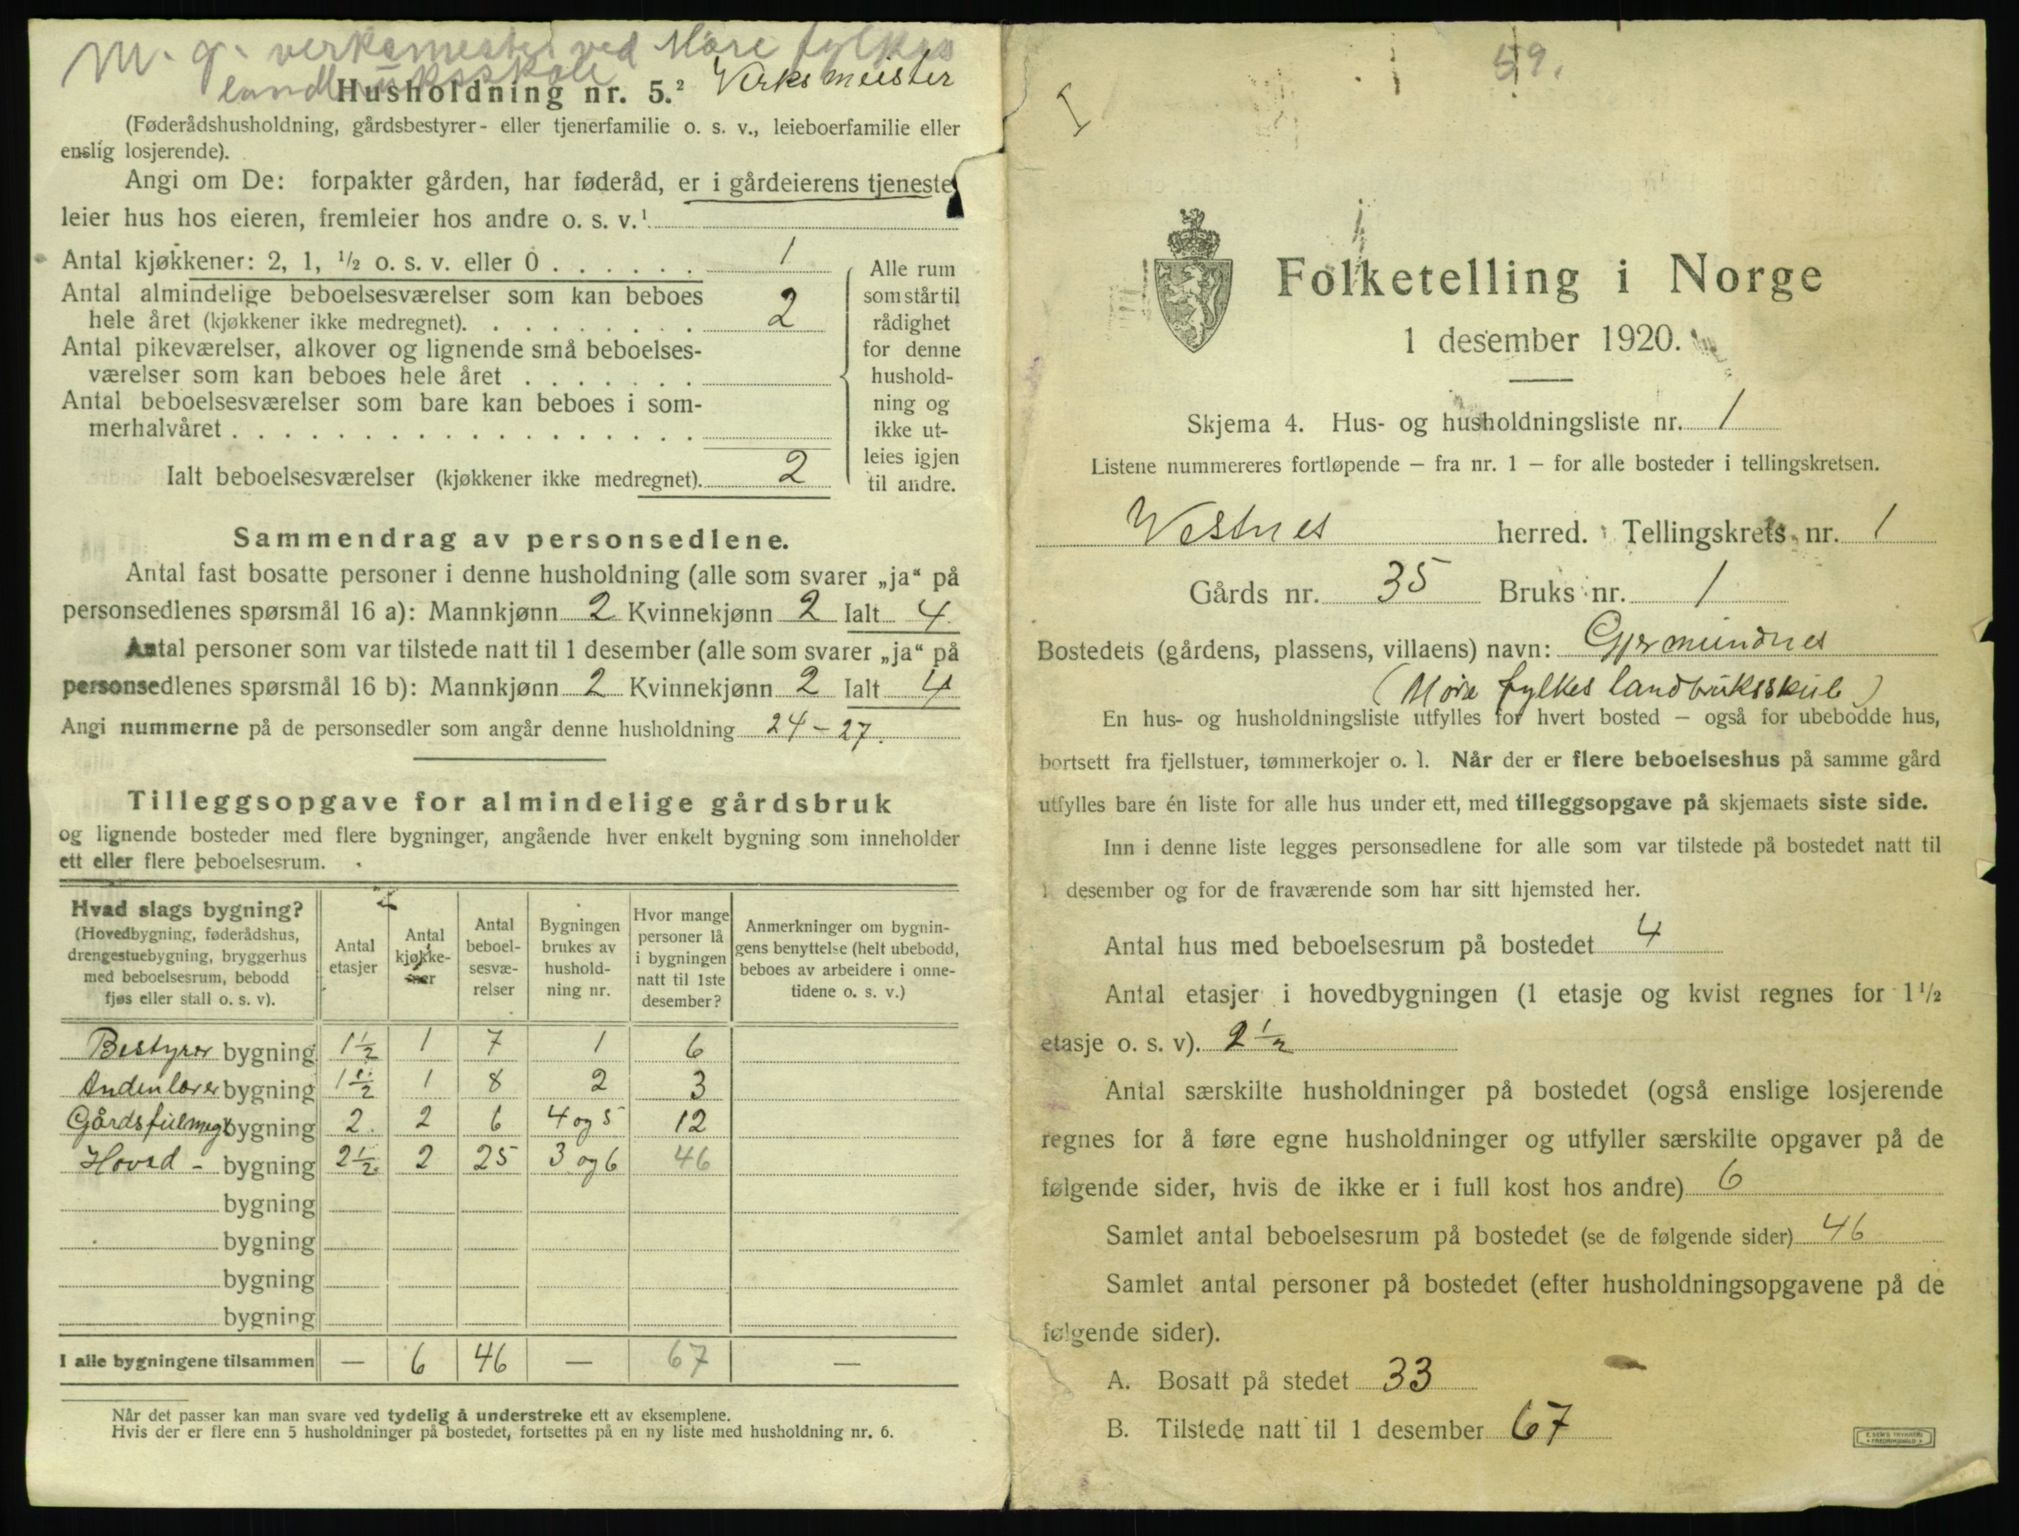 M. g. verksmester ved Møre fylkes
landbruksskole
Husholdning nr. 5.² Verksmeister
(Føderådshusholdning, gårdsbestyrer- eller tjenerfamilie o. s. v., leieboerfamilie eller
enslig losjerende).
Angi om De: forpakter gården, har føderåd, er i gårdeierens tjeneste
leier hus hos eieren, fremleier hos andre o. s. v.¹
Antal kjøkkener: 2, 1, ½ o. s. v. eller 0 . . . . . . 1
Antal almindelige beboelsesværelser som kan beboes
hele året (kjøkkener ikke medregnet). . . . . . . . . 2
Antal pikeværelser, alkover og lignende små beboelses-
værelser som kan beboes hele året . . . . . . .
Antal beboelsesværelser som bare kan beboes i som-
merhalvåret . . . . . . . . . . . . . . . . .
Ialt beboelsesværelser (kjøkkener ikke medregnet). 2
Alle rum
som står til
rådighet
for denne
hushold-
ning og
ikke ut-
leies igjen
til andre.
Sammendrag av personsedlene.
Antal fast bosatte personer i denne husholdning (alle som svarer „ja“ på
personsedlenes spørsmål 16 a): Mannkjønn 2 Kvinnekjønn 2 Ialt 4
Antal personer som var tilstede natt til 1 desember (alle som svarer „ja“ på
personsedlenes spørsmål 16 b): Mannkjønn 2 Kvinnekjønn 2 Ialt 4
Angi nummerne på de personsedler som angår denne husholdning 24 – 27.
Tilleggsopgave for almindelige gårdsbruk
og lignende bosteder med flere bygninger, angående hver enkelt bygning som inneholder
ett eller flere beboelsesrum.
Hvad slags bygning?
(Hovedbygning, føderådshus,
drengestuebygning, bryggerhus
med beboelsesrum, bebodd
fjøs eller stall o. s. v).
Antal
etasjer
Antal
kjøkke-
ner
Antal
beboel-
sesvæ-
relser
Bygningen
brukes av
hushold-
ning nr.
Hvor mange
personer lå
i bygningen
natt til 1ste
desember?
Anmerkninger om bygnin-
gens benyttelse (helt ubebodd,
beboes av arbeidere i onne-
tidene o. s. v.)
Bestyrer bygning 1½ 1 7 1 6
Andenlærer bygning 1½ 1 8 2 3
Gårdsfulmægt bygning 2. 2 6 4 og 5 12
Hoved - bygning 2½ 2 25 3 og 6 46
bygning
bygning
bygning
bygning
I alle bygningene tilsammen — 6 46 — 67 —
Når det passer kan man svare ved tydelig å understreke ett av eksemplene.
Hvis der er flere enn 5 husholdninger på bostedet, fortsettes på en ny liste med husholdning nr. 6.
59.
I
Folketelling i Norge
1 desember 1920.
Skjema 4. Hus- og husholdningsliste nr. 1
Listene nummereres fortløpende – fra nr. 1 – for alle bosteder i tellingskretsen.
Vestnes herred. Tellingskrets nr. 1
Gårds nr. 35 Bruks nr. 1
Bostedets (gårdens, plassens, villaens) navn: Gjermundnes
(Møre fylkes landbruksskule)
En hus- og husholdningsliste utfylles for hvert bosted – også for ubebodde hus,
bortsett fra fjellstuer, tømmerkojer o. l. Når der er flere beboelseshus på samme gård
utfylles bare én liste for alle hus under ett, med tilleggsopgave på skjemaets siste side.
Inn i denne liste legges personsedlene for alle som var tilstede på bostedet natt til
1 desember og for de fraværende som har sitt hjemsted her.
Antal hus med beboelsesrum på bostedet 4
Antal etasjer i hovedbygningen (1 etasje og kvist regnes for 1½
etasje o. s. v). 2½
Antal særskilte husholdninger på bostedet (også enslige losjerende
regnes for å føre egne husholdninger og utfyller særskilte opgaver på de
følgende sider, hvis de ikke er i full kost hos andre) 6
Samlet antal beboelsesrum på bostedet (se de følgende sider) 46
Samlet antal personer på bostedet (efter husholdningsopgavene på de
følgende sider).
A. Bosatt på stedet 33
B. Tilstede natt til 1 desember 67